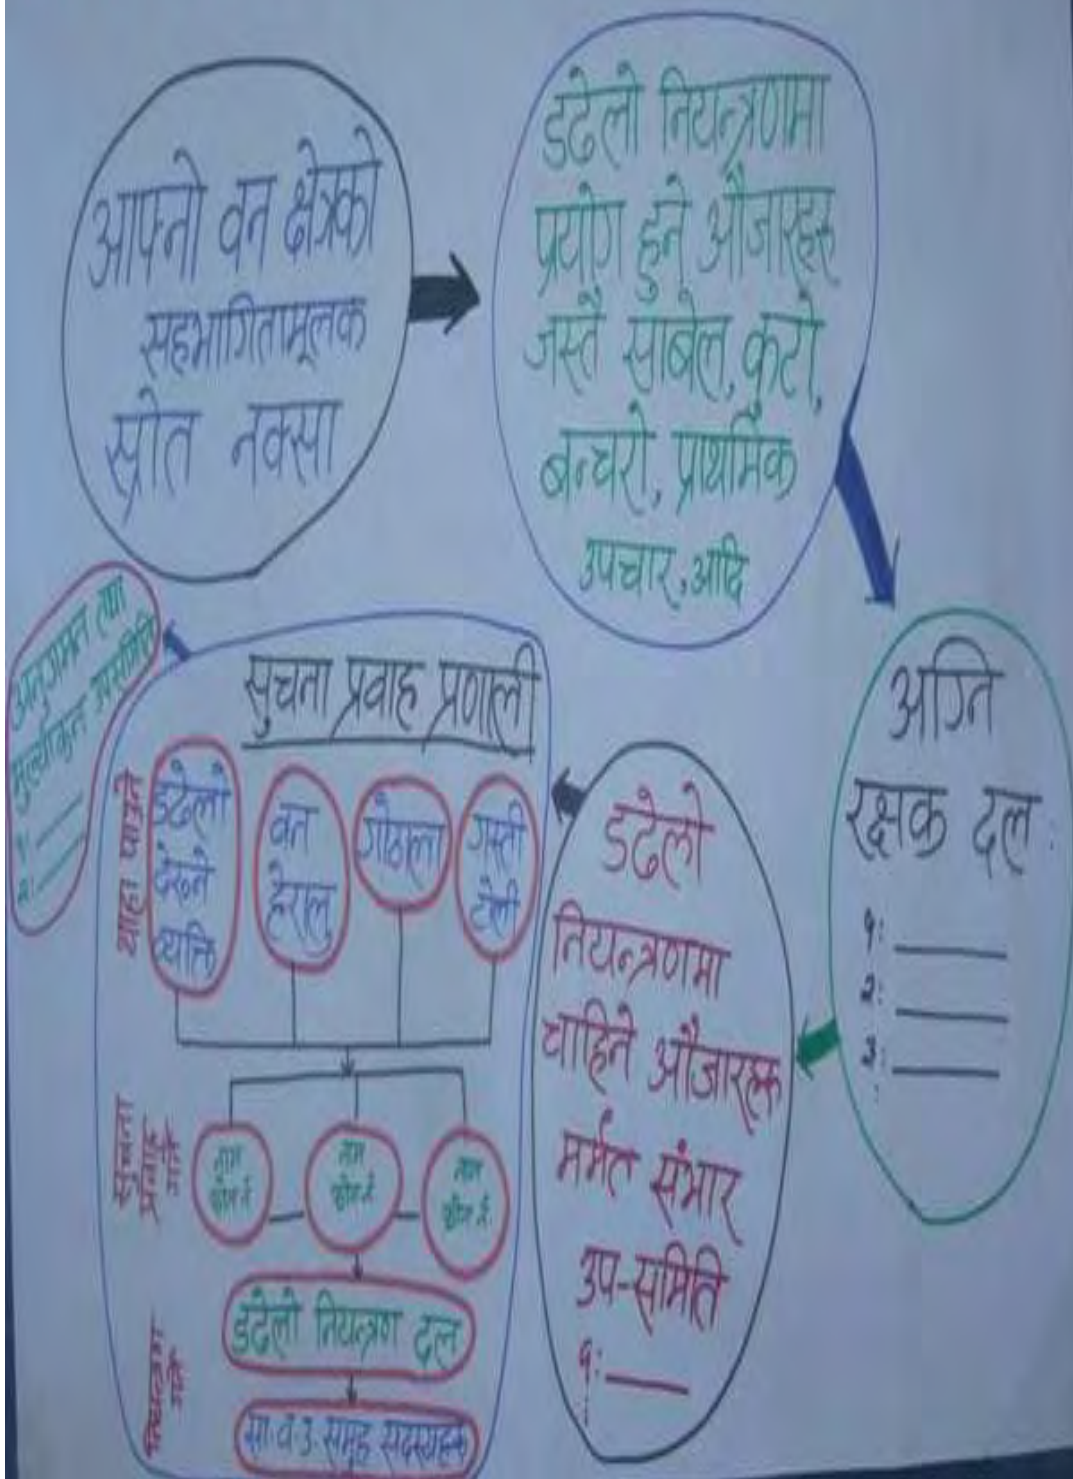 आफ्नो वन क्षेत्रको
सहभागितामूलक
स्रोत नक्सा
डढेलो नियन्त्रणमा
प्रयोग हुने औजारहरु
जस्तै साबेल, कुटो,
बन्चरो, प्राथमिक
उपचार, आदि
अग्नि
रक्षक दल:
१:
२:
३:
डढेलो
नियन्त्रणमा
चाहिने औजारहरु
मर्मत संभार
उप-समिति
१:
सुचना प्रवाह प्रणाली
थाहा पाउने
डढेलो
देख्ने
व्यक्ति
वन
हेरालु
गोठाला
गस्ती
टोली
सुचना
प्रवाह
गर्ने
नाम
फोन नं
नाम
फोन नं
नाम
फोन नं.
नियन्त्रण
गर्ने
डढेलो नियन्त्रण दल
सा.व.उ. समुह सदस्यहरु
अनुगमन तथा
मुल्यांकन उपसमिति
१:
२: